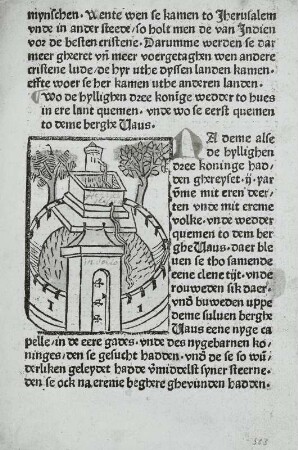 mynschen. Wente wen se kamen to Jherusalem
vnde in ander steede/ so holt men de van Indien
vor de besten cristene. Darumme werden se dar
meer gheeret vnde meer voergetaghen wen andere
cristene lude/ de hyr uthe dyssen landen kamen.
effte woer se her kamen uthe anderen landen.
Wo de hyllighen dree konige wedder to hues
in ere lant quemen. vnde wo se eerst quemen
to deme berghe Vaus.
NA deme alse
de hyllighen
dree koninge had
den ghereyset .ij. yar
vm̄e mit eren deer-
ten. vnde mit ereme
volke. vnde wedder
quemen to dem ber
ghe Vaus. daer ble
uen se tho samende
eene clene tijt. vnde
rouweden sik daer.
vnde buweden uppe
deme suluen berghe
Vaus eene nyge ca
pelle/ in de eere gades. vnde des nygebarnen ko
ninges/ den se gesucht hadden. vnde de se so wū
derliken geleydet hadde vm̄iddelst syner steerne.
den se ock na ereme beghere ghevunden hadden.